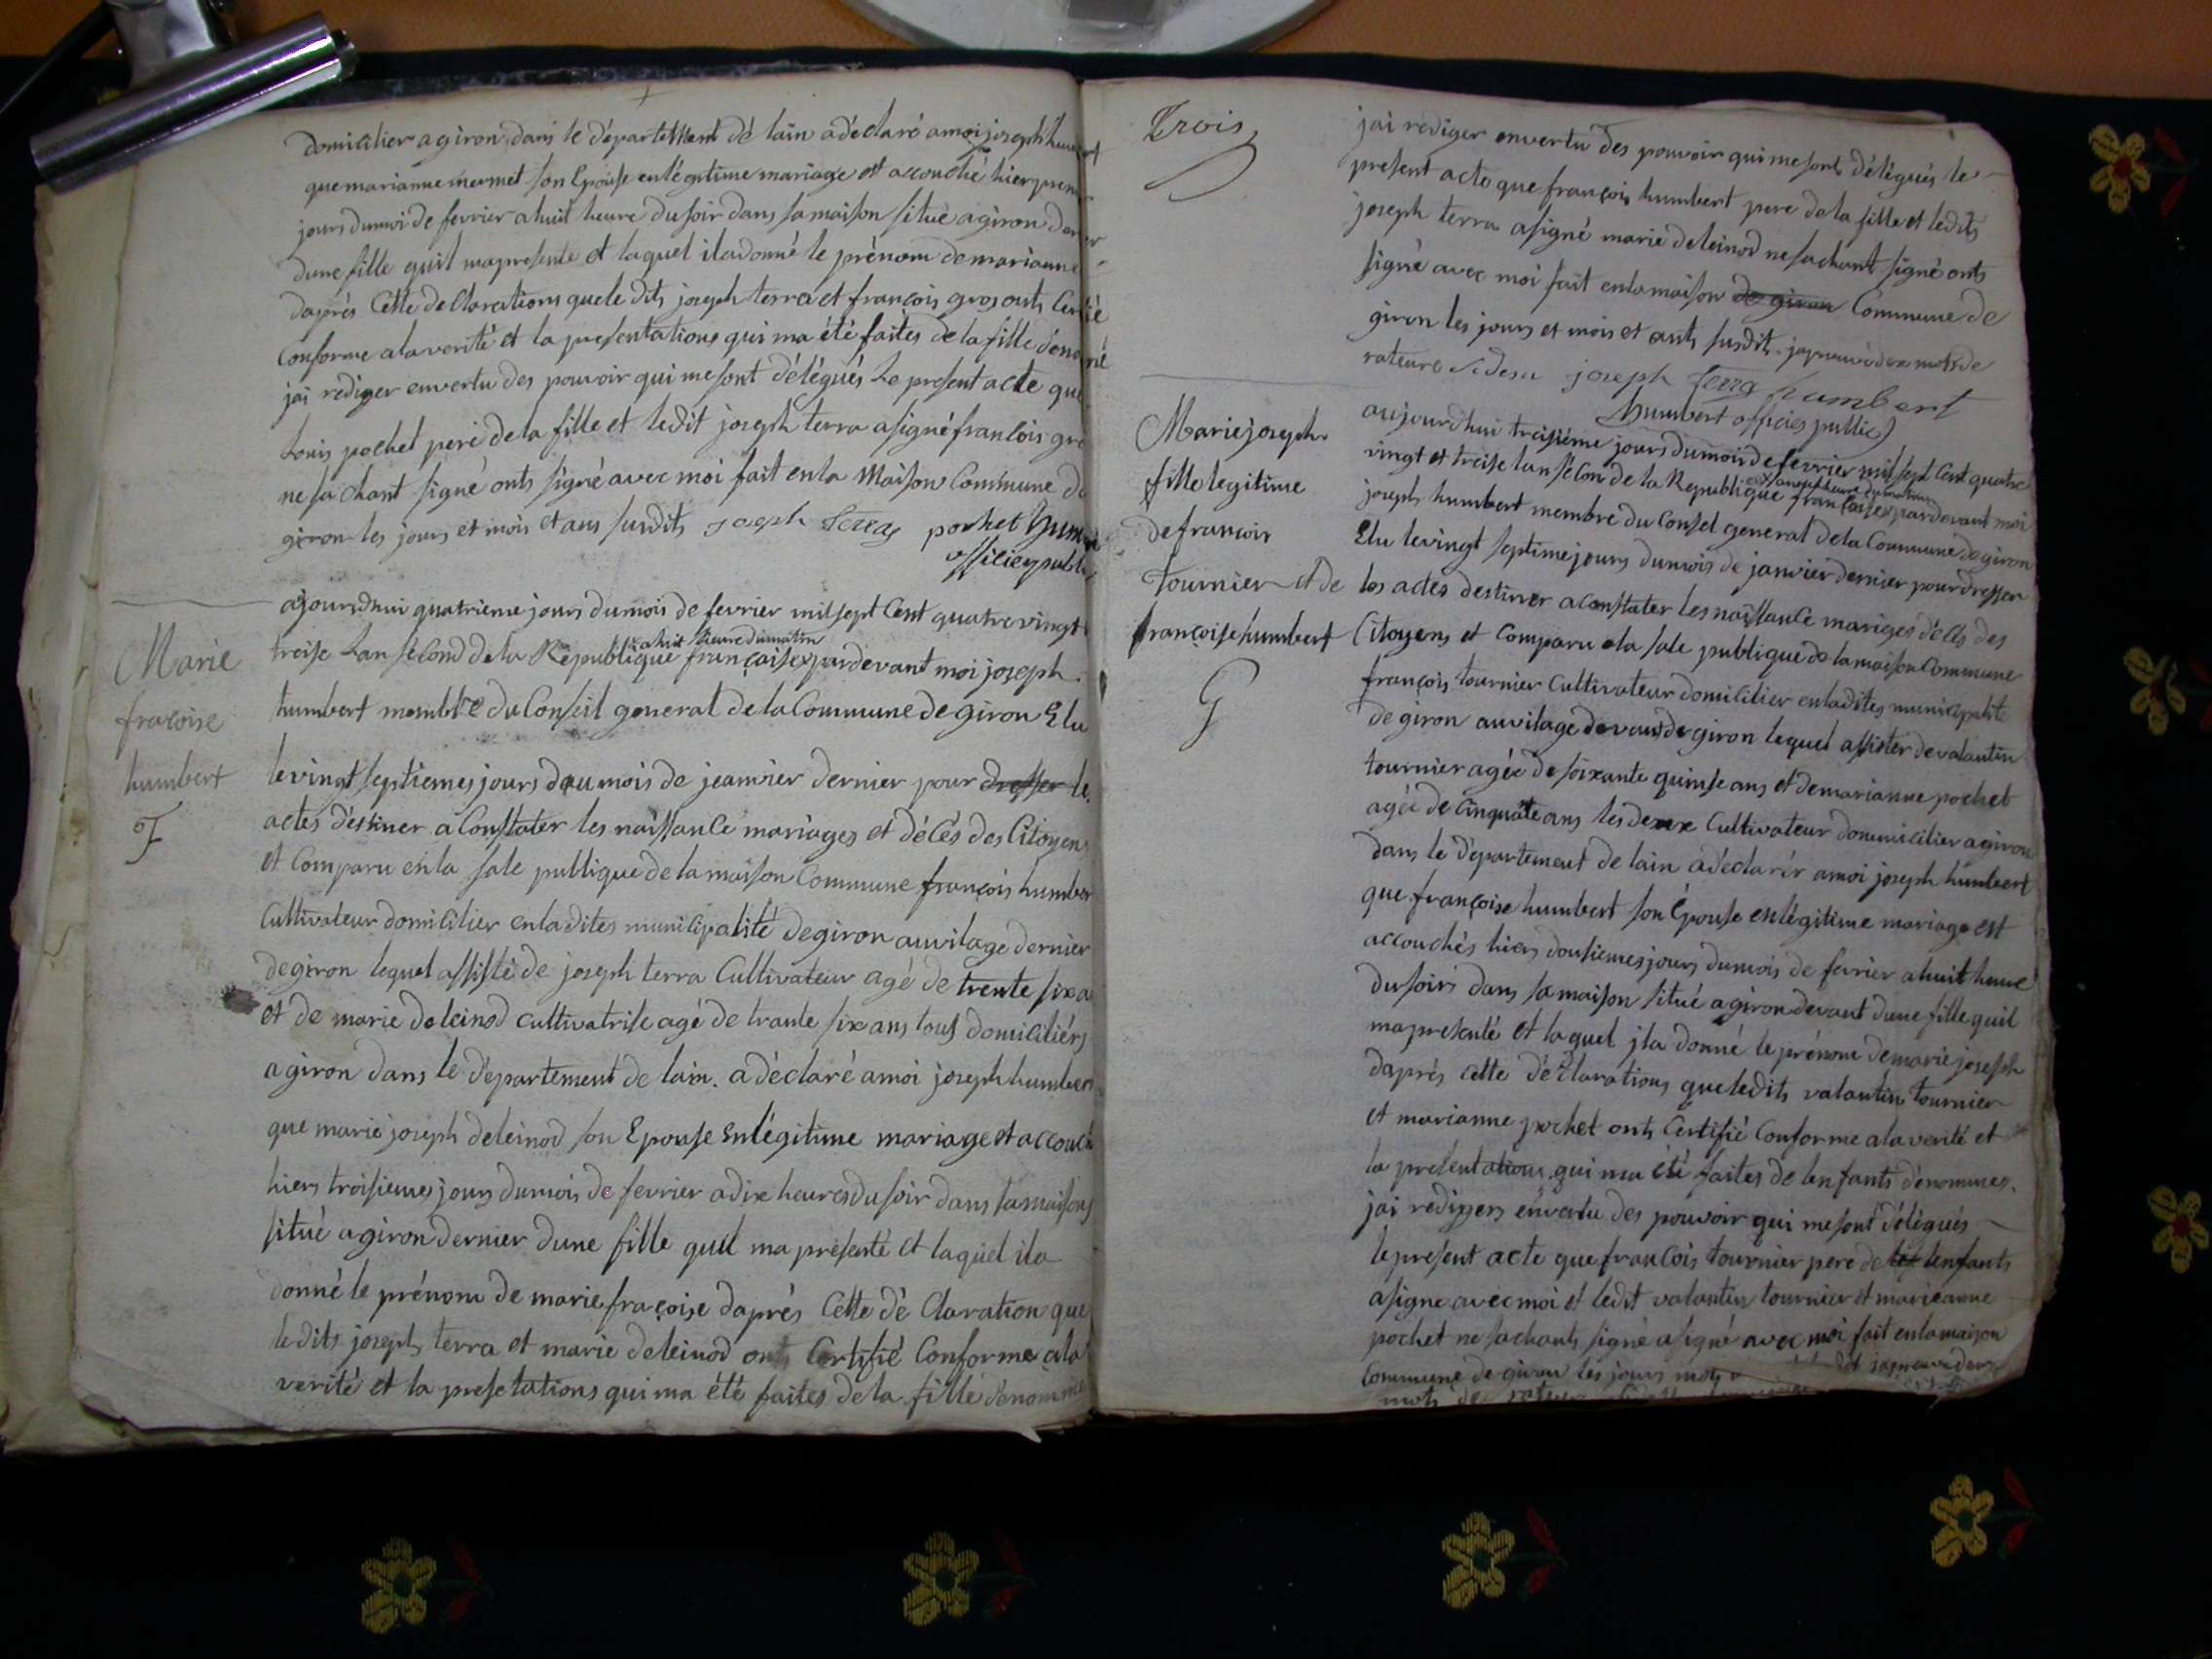 domicilier a giron dans le département dé lain a déclaré a moi joseph humbert
que marianne mermet son Epouse en légitime mariage et accouché hier
jours du moi de fevrier a huit heure du soir dans sa maison situé a giron
dune fille quil ma presente et laquel il a donné le prénom de marianne
daprés Cette de Clarations que le dits joseph terra et françois gros onts
Conforme a la verité et la presentations qui ma été faites de la fille
jai rediger en vertu des pouvoir qui me sont délégués Le present acte que
Louis pochet pere de la fille et ledit joseph terra a signé francois gros
ne sachant signé onts signé avec moi fait en la Maison Commune de
giron les jours et mois et ans susdits joseph terra pochet humbert
officier public
ajourdhui quatrieme jours du mois de fevrier mil sept Cent quatre vingt
a huit heure du matin
treise Lan sécond de la République françaises par devant moi joseph
humbert membre du Conseil general de la Commune de giron Elu
le vingt septiemes jours du mois de jeanvier dernier pour dresser le
actes destiner a Constater les naissance mariages et décés des Citoyens
et Comparu en la sale publique de la maison Commune françois humbert
Cultivateur domicilier en la dites municipalité de giron au vilage dernier
de giron lequel assisté de joseph terra Cultivateur agé de trente six
et de marie deleinod cultivatrise agé de trante six ans tous domiciliérs
a giron dans le département de lain. a déclaré a moi joseph humbert
que marie joseph deleinod son Epouse En légitime mariage et
hiers troisiemes jours du mois de fevrier a dix heures du soir dans sa maisons
situé a giron dernier dune fille quil ma présenté et laquel il a
donné le prénom de marie fraçoise daprés Cette dé Claration que
le dits joseph terra et marie deleinod onts Certifié Conforme a la
verité et la presetations qui ma été faites de la fille
Marie
fracoise
humbert
F
Trois
jai rediger en vertu des pouvoir qui me sont délégués le
present acte que françois humbert pere de la fille et ledits
joseph terra a signé marie deleinod ne sachant signé onts
signé avec moi fait en la maison de giron Commune de
giron les jours et mois et ants susdit
rature joseph terra humbert
humbert officier public
aujourdhui treisiéme jours du mois de fevrier mil sept Cent quatre
vingt et treise lan sécon de la Republique françaises par devant moi
joseph humbert membre du Consel general de la Commune de giron
Elu le vingt septime jours du mois de janvier dernier pour dresser
les actes destiner a Constater les naissance mariges décés des
Citoyens et Comparu a la sale publique de la maison Commune
françois tournier Cultivateur domicilier en la dites municipalité
de giron au vilage devant de giron lequel assister de valantin
tournier agée de soixante quinse ans et de marianne pochet
agée de Cinquate ans les deux Cultivateur domicilier a giron
dans le département de lain a déclarér a moi joseph humbert
que françoise humbert son Epouse en légitime mariage est
accouchés hiers dousiemes jours du mois de fevrier a huit heure
du soirs dans sa maison situé a giron devant dune fille quil
ma presenté et laquel il a donné le prénom de marie joseph
daprés cette dé Clarations que ledits valantin tournier
et marianne pochet onts Certifié Conforme a la verité et
la presentations qui ma été faites de lenfants dénommés
jai redigers en vertu des pouvoir qui me sont délégués
le present acte que francois tournier pere de lenfants
a signe avec moi et ledit valantin tournier et marieanne
pochet ne sachants signé a signé avec moi fait en la maison
Commune de giron les jours
Marie joseph
fille legitime
de francois
Tournier et de
françoise humbert
G